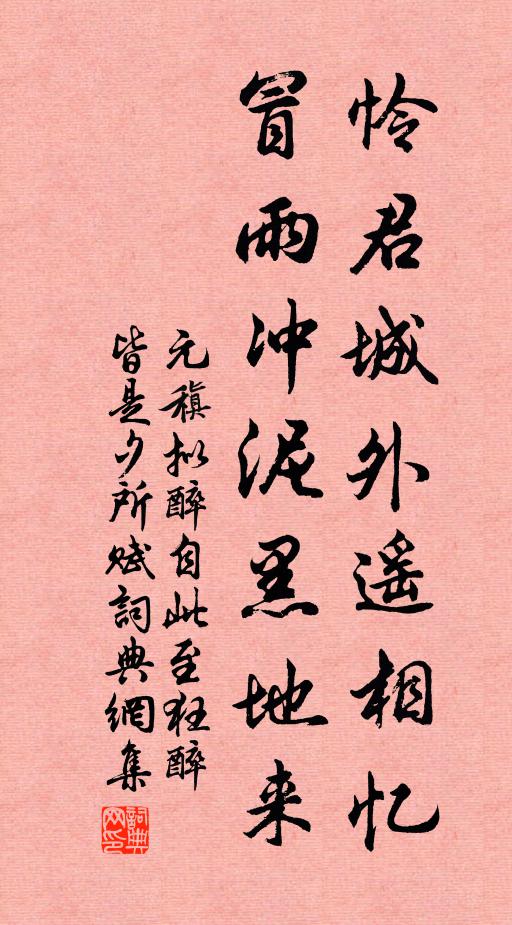 怜君城外遥相忆
冒雨冲泥黑地来
元稹拟醉自此至狂醉
皆是夕所赋詞典網集
詞典网印